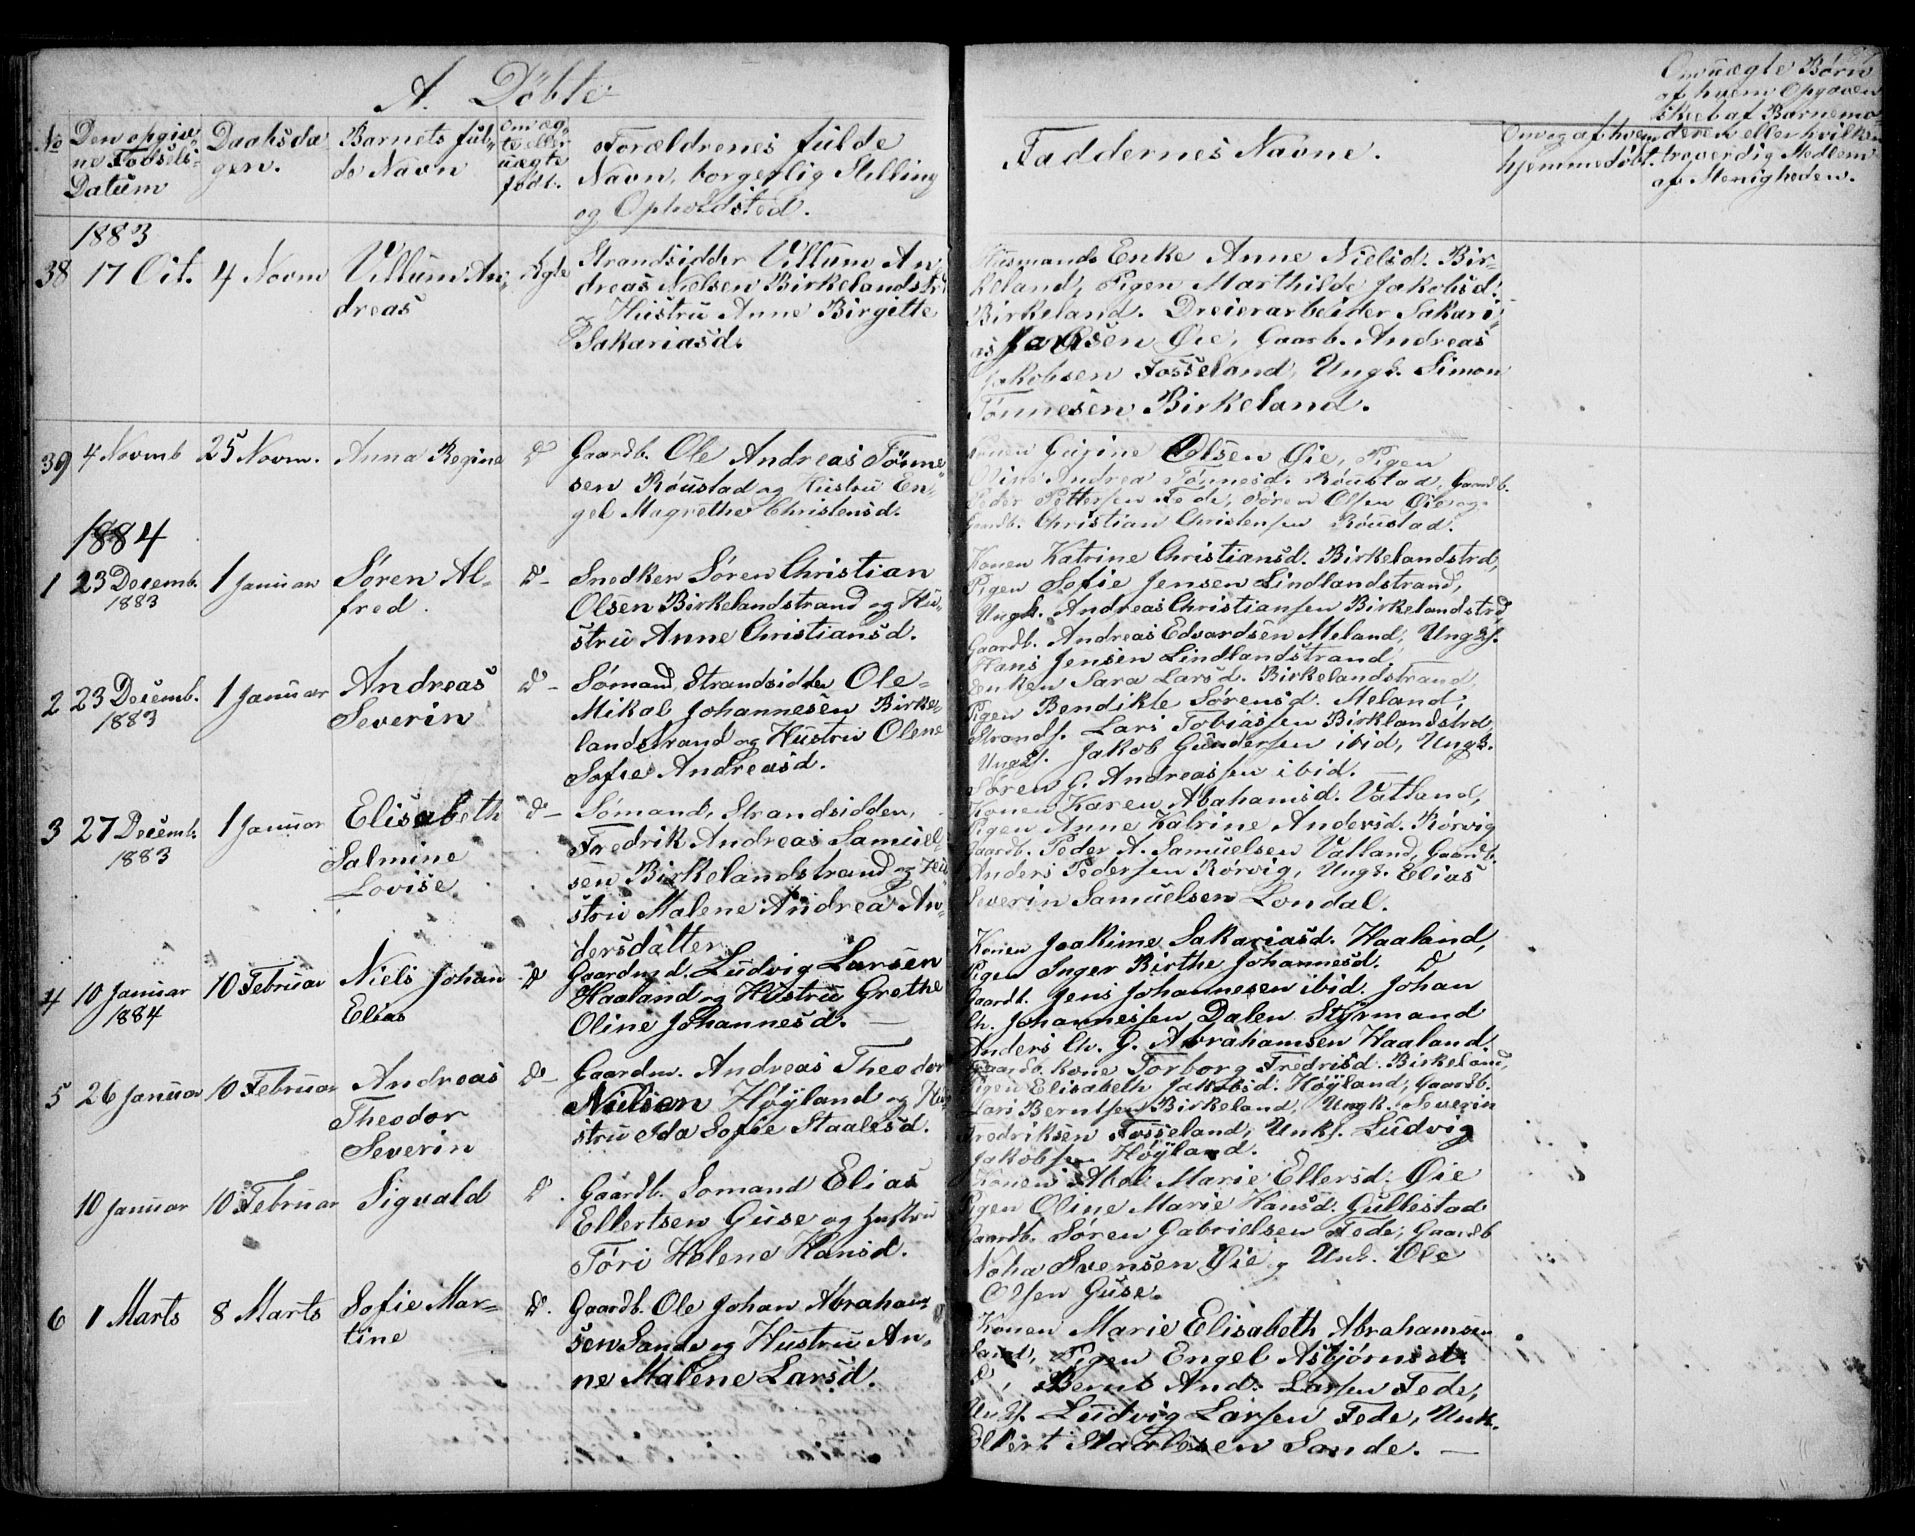 A. Döbte
No
Den opgiv-
ne Födsels-
Datum
Daabsda
gen.
Barnets ful-
de Navn
om æg-
te eller
uægte
födt.
Forældrenes fulde
Navn, borgerlig Stilling
og Opholdsted.
Faddernes Navne.
Om og af hvem
hjemmedöbt.
Om uægte Börn
af hvem Opgaven
skeet af Barnemo
deren eller hvilken
troverdig Medlem
af Menigheden.
1883
38 17 Oct. 4 Novm Villum An-
dreas
Ægte
Strandsidder Villum An-
dreas Nielsen Birkelandstr
og Hustru Anne Birgitte
Sakariasd.
Husmands Enke Anne Nielsd. Bir-
keland, Pigen Marthilde Jakobsd.
Birkeland. Dreierarbeider Sakari-
as Øie, Gaarb. Andreas
Jakobsen Fosseland, Ungk. Simon
Tönnesen Birkeland.
39 4 Novmb 25 Novm. Anna Regine D
Gaardb. Ole Andreas Tönne-
sen Röustad og Hustru En-
gel Magrethe Christensd.
Konen Gujine Olsen Øie, Pigen
Andrea Tönnesd. Röustad, Gaardb.
Peder Pettersen Fede, Sören Olsen Øie og
Gaardb. Christian Christensen Röustad.
1884
1 23 Decemb. 1 Januar Søren Al-
1883
fred.
D-
Snedker Søren Christian
Olsen Birkelandstrand og Hu-
stru Anne Christiansd.
Konen Katrine Christiansd. Birkelandstrd,
Pigen Sofie Jensen Lindlandstrand,
Ungk. Andreas Christiansen Birkelandstrd
Gaardb. Andreas Edvardsen Meland, Ungk.
Hans Jensen Lindlandstrand.
2 23 Decemb. 1 Januar Andreas
1883
Severin
D-
Sømand, Strandsidder Ole
Mikal Johannesen Birke-
landstrand og Hustru Olene
Sofie Andreasd.
Enken Sara Larsd. Birkelandstrand,
Pigen Bendikte Sørensd. Meland,
Strands. Lars Tobiassen Birklandstrd
Ungk. Jakob Gundersen ibid, Ungk.
Søren G. Andreassen ibid.
3 27 Decemb. 1 Januar Elisabeth
1883
Salmine
Lovise
D-
Sømand, Strandsidder,
Fredrik Andreas Samuel-
sen Birkelandstrand og Hu-
stru Malene Andrea An-
dersdatter
Konen Karen Abahamsd. Vatland,
Pigen Anne Katrine Andersd. Rörvig
Gaardb. Peder A. Samuelsen Vatland, Gaardb.
Anders Pedersen Rörvig, Ungk. Elias
Severin Samuelsen Londal.
4 10 Januar 10 Februar Niels Johan
1884
Elias
D
Gaardmd. Ludvig Larsen
Haaland og Hustru Grethe
Oline Johannesd.
Konen Joakime Sakariasd. Haaland,
Pigen Inger Birthe Johannesd. D
Gaardb. Jens Johannesen ibid. Johan
Ch. Johannessen Dalen Styrmand
Anders Chr. G. Abrahamsen Haaland
5 26 Januar 10 Februar Andreas
Theodor
Severin
D-
Gaardm. Andreas Theodor
Nielsen Høyland og Hu-
stru Ida Sofie Staalesd.
Gaardb. kone Torborg Fredrisd. Birkeland,
Pigen Elisabeth Jakobsd. Høyland, Gaardb.
Lars Berntsen Birkeland, Ungk. Severin
Fredriksen Fosseland, Unks. Ludvig
Jakobsen Høyland.
10 Januar 10 Februar Sigvald D.
Gaardb. Somand Elias
Ellertsen Guse og Hustru
Töri Helene Hansd.
Konen Abel Marie Ellersd. Øie
Pigen Oline Marie Hansd. Gullestad
Gaardb. Søren Gabrielsen Fede, Gaardb
Noha Svensen Øie, Unk. Ole
Olsen Guse.
6 1 Marts 8 Marts Sofie Mar-
tine
D.
Gaardb. Ole Johan Abraham-
sen Sande og Hustru An-
ne Malene Larsd.
Konen Marie Elisabeth Abrahamsen
Sand, Pigen Engel Asbjørnsd.
D, Bernt And. Larsen Fede,
Ungk. Ludvig Larsen Fede, Unk.
Ellert Staalesen Sande.